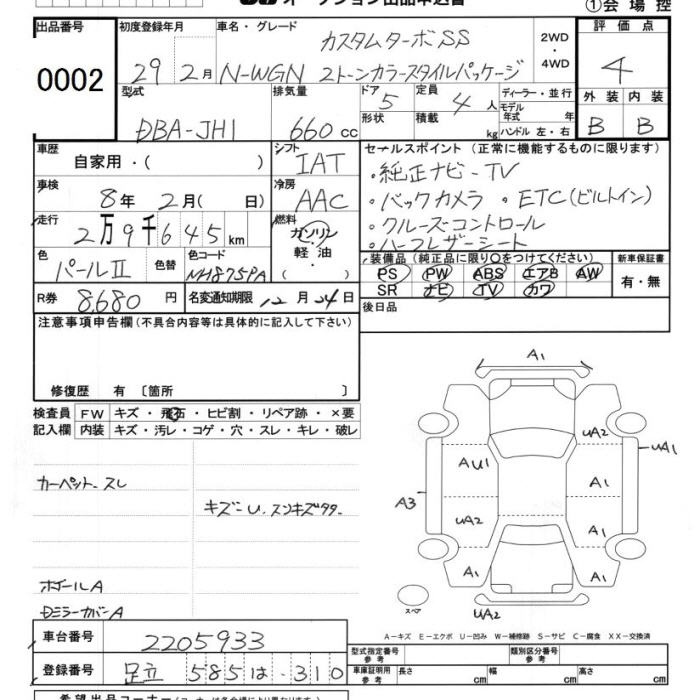 オークション出品申込書
①会場控
出品番号 0002
初度登録年月 29 2月
車名・グレード カスタムターボSS
N-WGN 2トーンカラースタイルパッケージ
2WD・4WD
評価点 4
外装 内装
B B
型式 DBA-JH1
排気量 660cc
ドア 5
定員 4人
形状
積載 kg
ディーラー・並行
モデル年式 年
ハンドル 左・右
車歴 自家用・( )
シフト IAT
車検 8年 2月( 日)
冷房 AAC
走行 2万9千645km
燃料 ガソリン
軽油
・( )
色 パールⅡ
色替
色コード NH875PA
R券 8,680円
名変通知期限 12月24日
セールスポイント (正常に機能するものに限ります)
・純正ナビ・TV
・バックカメラ ・ETC(ビルトイン)
・クルーズコントロール
・ハーフレザーシート
装備品(純正品に限り○をつけてください)
PS PW ABS エアB AW
SR ナビ TV カワ
新車保証書
有・無
後日品
注意事項申告欄(不具合内容等は具体的に記入して下さい)
修復歴 有〔箇所 〕
検査員 FW キズ・飛石・ヒビ割・リペア跡・×要
記入欄 内装 キズ・汚レ・コゲ・穴・スレ・キレ・破レ
カーペット スレ
キズ
ホイールA
DミラーカバーA
A1
UA2
UA1
AU1
A1
A3
UA2
A1
A1
A1
スペア
UA2
A-キズ E-エクボ U-凹み W-補修跡 S-サビ C-腐食 XX-交換済
車台番号 2205933
登録番号 足立 585 は ・310
型式指定番号 参考
類別区分番号 参考
車庫証明用 参考 長さ cm 幅 cm 高さ cm
希望出品コーナー